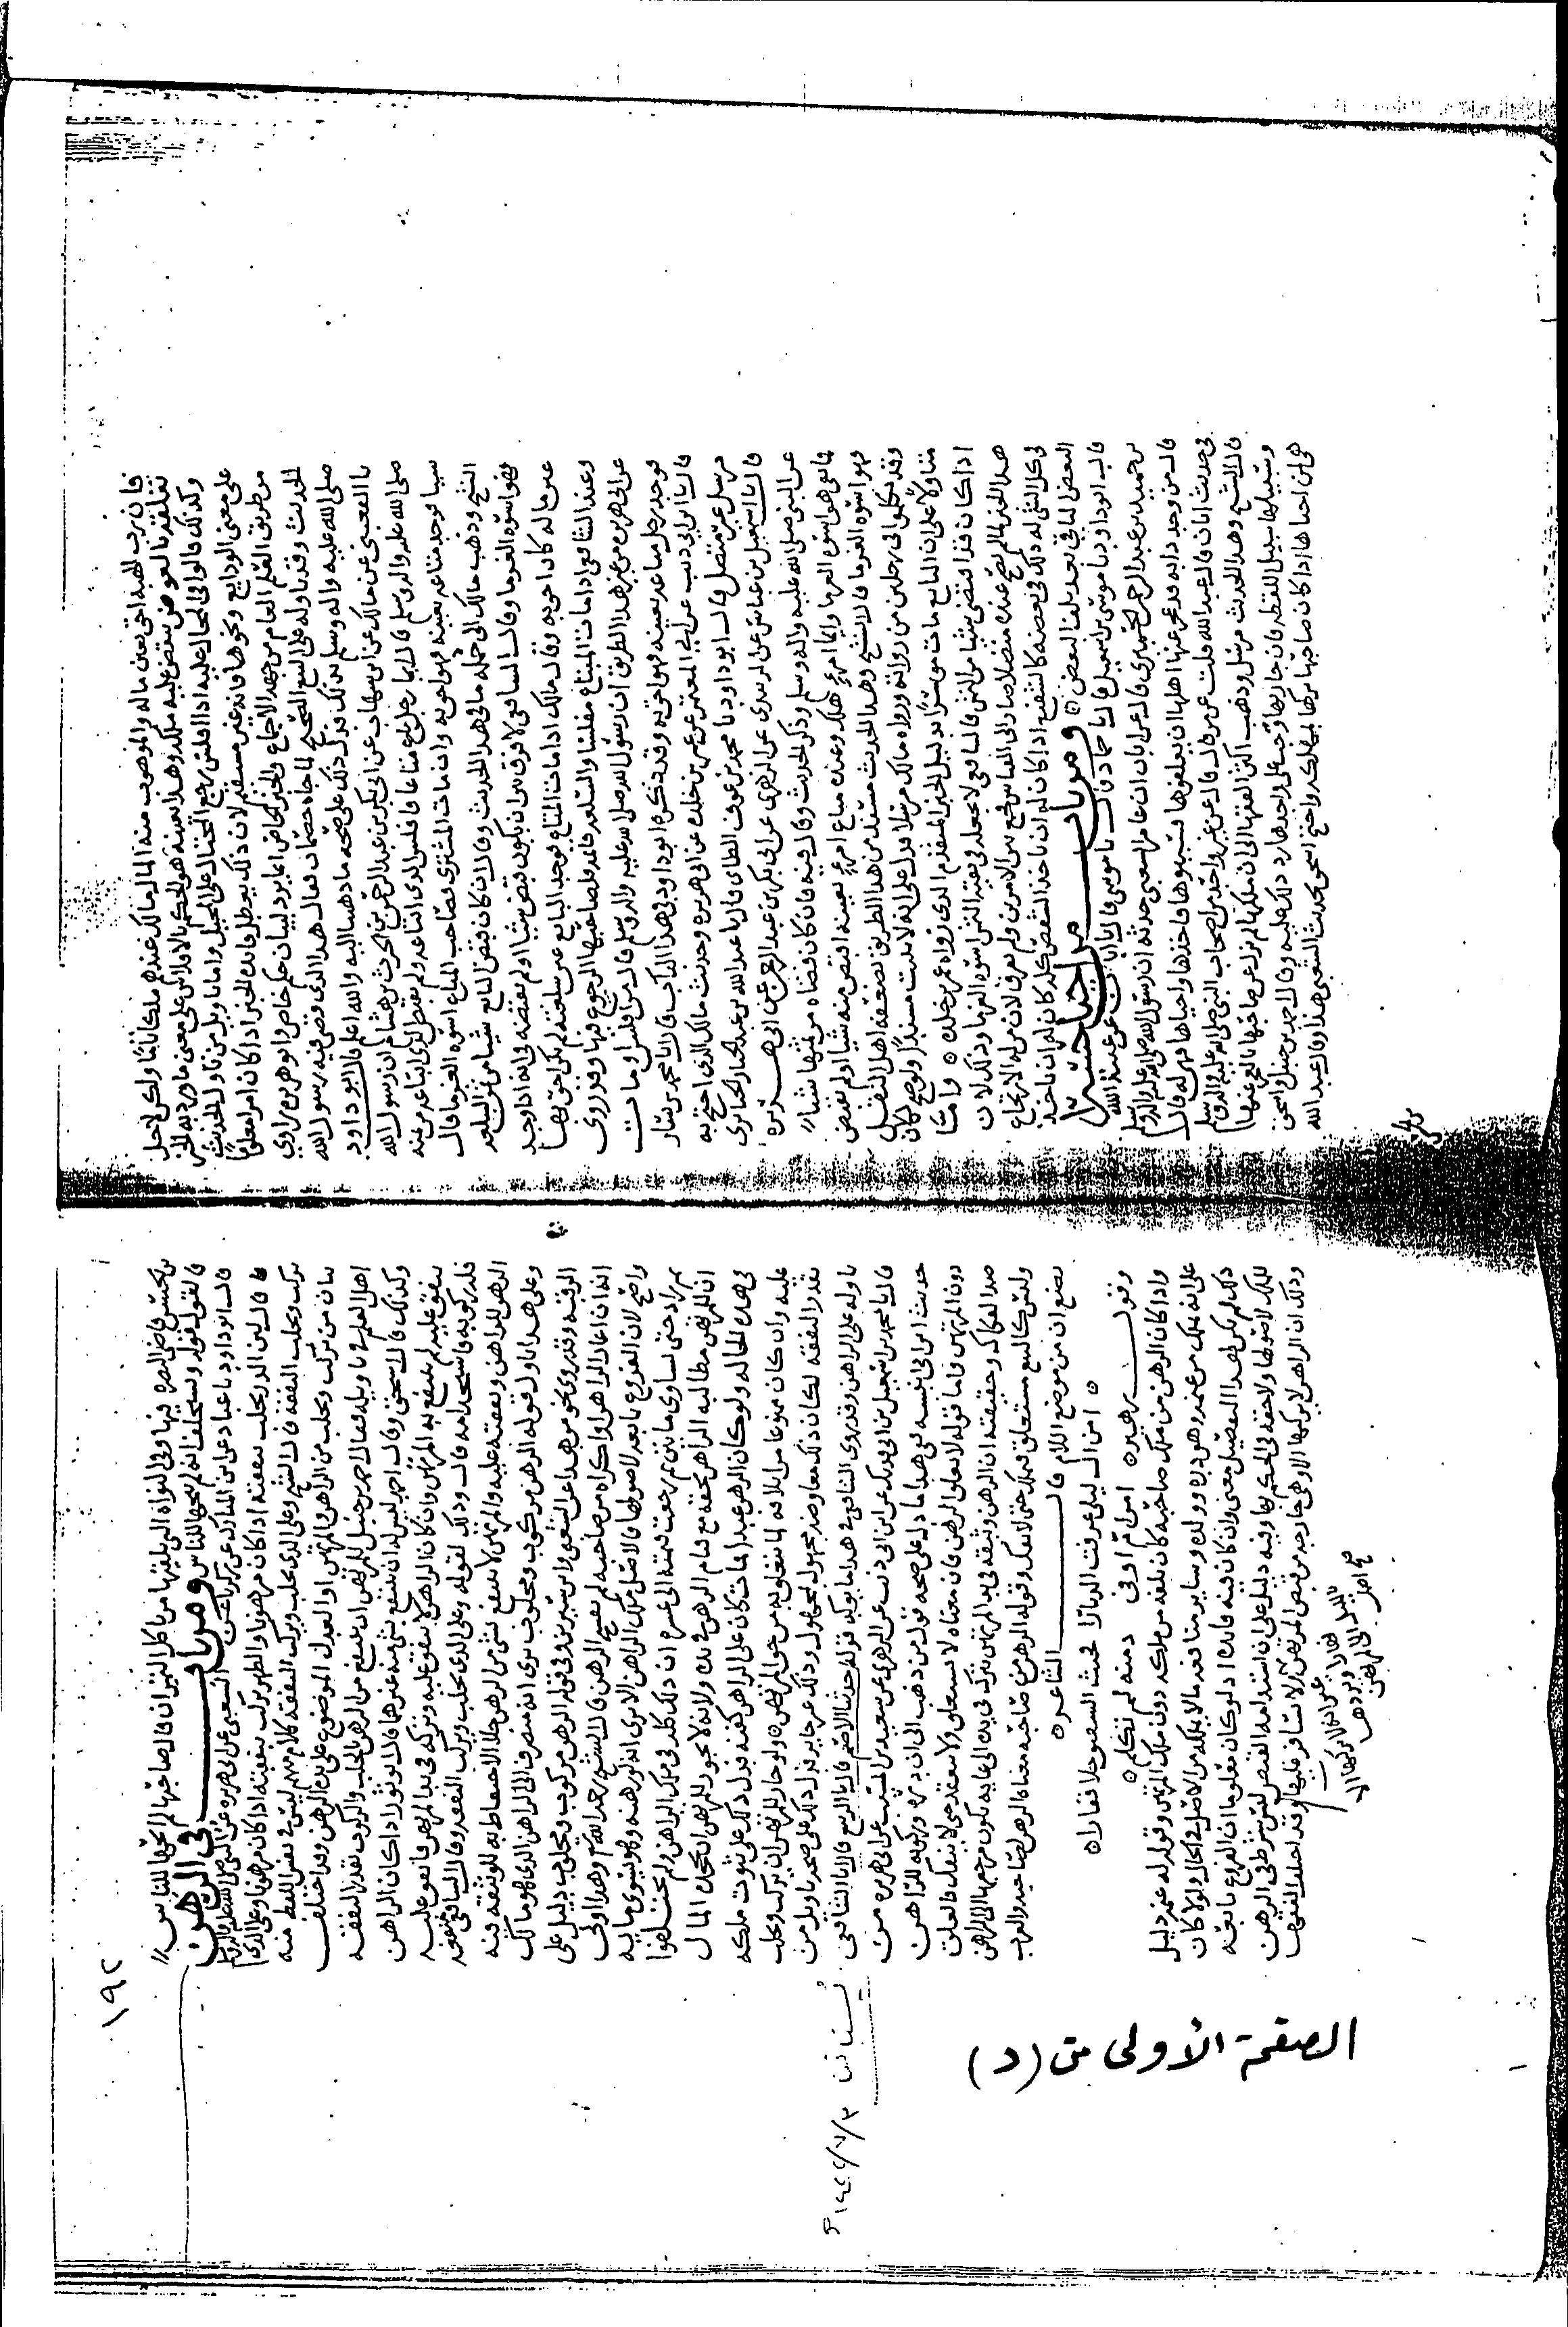 فان رب الهبة احق بعين ماله والموهوب منه المال مالك عندهم ملكا تاما ولكن لاجل
تعلقه بالعوض ينتقض عليه ملكه وهذا بعينه هو الحكم بالافلاس على معنى ما ورد به الخبر
وكذلك قالوا في المحال عليه اذا افلس رجع المحتال على المحيل واما ما ويل من تاول الحديث
على معنى الودايع ونحوها فانه غير مستقيم لان ذلك يبطل فايدة الخبر اذ كان امرا معلوما
من طريق العلم العام من جهة الاجماع والخبر الخاص انما يرد لبيان حكم خاص وابو هريرة راوي
الحديث وقد تاوله على البيع الصحيح لما جاه خصمان فقال هذا الذي قضى فيه رسول الله
صلى الله عليه واله وسلم بذلك فدل ذلك على صحة ما ذهبنا اليه والله اعلم قال ابو داود
نا القعنبي عن مالك عن ابن شهاب عن ابي بكر بن عبد الرحمن بن الحرث بن هشام ان رسول الله
صلى الله عليه واله وسلم قال ايما رجل باع متاعا فافلس الذي ابتاعه ولم يقبض الذي باعه من ثمنه
شيئا فوجد متاعه بعينه فهو احق به وان مات المشتري فصاحب المتاع اسوة الغرما قال
الشيخ وذهب مالك الى جملة ما في هذا الحديث وقال ان كان قبض البايع شيئا من ثمن السلعة
فهو اسوة الغرما وقال الشافعي لا فرق بين ان يكون قبض شيئا او لم يقبضه في انه اذا وجد
عين ماله كان احق به وقال مالك اذا مات المبتاع فوجد البايع عين سلعته لم يكن احق بها
وعند الشافعي اذا مات المبتاع مفلسا والسلعة قائمة فلصاحبها الرجوع فيها وقد روي
عن ابي هريرة من غير هذا الطريق ان رسول الله صلى الله عليه واله وسلم قال من افلس او مات
فوجد رجل متاعه بعينه فهو احق به وقد ذكره ابو داود في هذا الباب قال نا محمد بن بشار
قال نا ابن ابي ذيب عن ابي المعتمر عن عمر بن خلدة عن ابي هريرة وحديث مالك الذي احتج به
مرسل غير متصل قال ابو داود نا محمد بن عوف الطاي قال نا عبد الله بن عبد الجبار الخبايري
قال نا اسمعيل بن عياش عن الزبيدي عن الزهري عن ابي بكر بن عبد الرحمن عن ابي هريرة
عن النبي صلى الله عليه واله وسلم وذكر الحديث وقال فيه فان كان قضاه من ثمنها شيئا
فما بقي هو اسوة الغرما وايما امرئ هلك وعنده متاع امرئ بعينه اقتضى منه شيئا او لم يقتض
فهو اسوة الغرما قال الشيخ وهذا الحديث مسند من هذا الطريق تضعفه اهل النقل
وقد تكلموا في رجلين من رواته ورواه مالك مرسلا فدل على انه لا يثبت مسندا ولو صح لكان
متاولا على ان البايع مات موسرا بدليل الخبر المتقدم الذي رواه عمر بن خلدة ه واما
اذا كان قد اقتضى شيئا من الثمن فالشافعي لا يجعله في بقية الثمن اسوة الغرما وذلك لان
هذا الخبر لما لم يصح عنده متصلا صار الى القياس فجمع بين الامرين ولم يفرق لان من له الارتجاع
في كل الشي له ذلك في بعضه كالشفيع اذا كان له ان ياخذ الشقص كله كان له ان ياخذ
البعض الباقي بعد تلف البعض ه ومن باب من احيا حسيرا
قال ابو داود نا موسى بن اسمعيل قال نا حماد قال نا موسى قال نا ابان عن عبيد الله
بن حميد بن عبد الرحمن الحميري قال عن ابان ان عامر الشعبي حدثه ان رسول الله صلى الله عليه واله وسلم
قال من وجد دابه قد عجز عنها اهلها ان يعلفوها فسيبوها فاخذها واحياها فهي له قال
في حديث ابان قال عبيد الله فقلت عن من قال عن غير واحد من اصحاب النبي صلى الله عليه واله وسلم
قال الشيخ وهذا الحديث مرسل وذهب اكثر الفقها الى ان ملكها لم يزل عن صاحبها بالعجز عنها
وسبيلها سبيل اللقطه فان جا ربها وجب على واجدها رد ذلك عليه وقال احمد بن حنبل واسحق
هي لمن احياها اذا كان صاحبها تركها بمهلكه واحتج اسحق بحديث الشعبي هذا وقال عبيد الله
١٩٢
بن الحسن قاضي البصره فيها وفي النواة التي يلقيها من ياكل التمر ان قال صاحبها لم ابحها للناس
فالقول قوله ويستحلف انه لم يبحها للناس ومن باب في الرهن
قال ابو داود نا هناد عن ابن المبارك عن زكريا عن الشعبي عن ابي هريره عن النبي صلى الله عليه واله وسلم
قال لبن الدر يحلب بنفقته اذا كان مرهونا والظهر يركب بنفقته اذا كان مرهونا وعلى الذي
يركب ويحلب النفقة قال الشيخ وعلى الذي يحلب ويركب النفقه كلام مبهم ليس في نفس اللفظ منه
بيان من يركب ويحلب من الراهن او المرتهن او العدل الموضوع على يده الرهن وقد اختلف
اهل العلم في تاويله فقال احمد بن حنبل للمرتهن ان ينتفع من الرهن بالحلب والركوب بقدر النفقه
وكذلك قال اسحق وقال احمد ليس له ان ينتفع بشي منه غيرهما قال ابو ثور اذا كان الراهن
ينفق عليه لم ينتفع به المرتهن وان كان الراهن لا ينفق عليه وتركه في يد المرتهن فانفق عليه
فله ركوبه واستخدامه قال وذلك لقوله وعلى الذي يحلب ويركب النفقه وقال الشافعي منفعة
الرهن للراهن ونفقته عليه والمرتهن لا ينتفع بشي من الرهن خلا الاحتفاظ به للوثيقه فيه
وعلى هذا تاول قوله الرهن مركوب ومحلوب يرى انه منصرف الى الراهن الذي هو مالك
الرقبه وقد روي نحو من هذا عن الشعبي وابن سيرين وفي قوله الرهن مركوب ومحلوب دليل على
انه ان اعار الراهن او اكراه من صاحبه لم يفسخ الرهن قال الشيخ رحمه الله وهذا اولى
واصح لان الفروع تابعه لاصولها والاصل ملك الراهن الا ترى انه لو رهنه وهو يسوى مايه
ثم زاد حتى ساوى مايتين ثم رجعت قيمته الى عشره ان ذلك كله في ملك الراهن ولم يختلفوا
ان للمرتهن مطالبة الراهن بحقه مع قيام الرهن في يده ولانه لا يجوز للمرتهن ان يجحد المال
في هذه الحاله ولو كان الرهن عبدا فمات كان على الراهن كفنه فدل ذلك على ثبوت ملكه
عليه وان كان ممنوعا من اتلافه لما يتعلق به من حق المرتهن ولو جاز للمرتهن ان يركب ويحلب
بقدر النفقه لكان ذلك معاوضه مجهول بمجهول وذلك غير جايز فدل ذلك على صحة تاويل من
تاوله على الراهن وقد روى الشافعي في هذا ما يوكد قوله حدثنا الاصم قال نا الربيع قال نا الشافعي
قال نا محمد بن اسمعيل بن ابي فديك عن ابن ابي ذيب عن الزهري عن سعيد بن المسيب عن ابي هريره من
حديث ابن ابي انيسه ففي هذا ما دل على صحة قول من ذهب الى ان دره وركوبه للراهن
دون المرتهن واما قوله لا يغلق الرهن فان معناه لا يستغلق ولا ينعقد حتى لا ينفك والغلق
ضد الفكاك وحقيقته ان الرهن وثيقه في يد المرتهن يترك في يده الى غايه يكون مرجعها الى الراهن
وليس كالبيع يستغلق فيملك حتى لا يفك وقوله الرهن من صاحبه معناه الرهن لصاحبه والعرب
تضع من موضع اللام قال الشاعر ه
ه امن ال ليلى عرفت الديارا بجنب الشقيق خلا قفارا ه
وقول زهير ه امن ام اوفى دمنه لم تكلم ه
واذا كان الرهن من ملك صاحبه كان تلفه من ملكه دون ملك المرتهن وقوله له غنمه دليل
على انه يملك من غنمه وهو دره وولده وساير منافعه ما لا يملكه من الاصل في الحال ولولا كان
ذلك لم يكن لهذا التفصيل معنى وان كان فيه فايده اذ لو كان معلوما ان الفروع تابعه
للملك لاصولها ولاحقه في الحكم بها وفيه دليل على ان استدامة القبض ليس بشرط في الرهن
وذلك ان الراهن لا يركبها الا وهي خارجه من قبض المرتهن لانه لا يسافر عليها وقد اختلف الفقها
الصفحة الأولى من (د)